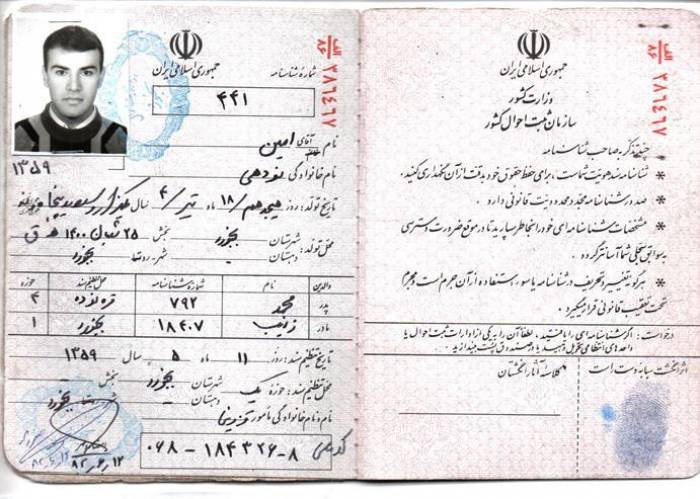 جمهوری اسلامی ایران
شماره شناسنامه
۴۴۱
۱۳۵۹
نام آقای امین
نام خانوادگی
تاریخ تولد: روز هیجدهم / ۱۸ ماه تیر / ۴ سال
۲۵ شعبان ۱۴۰۰ ه ق
محل تولد: شهرستان بجنورد بخش
دهستان شهر - روستا بجنورد
والدین نام شماره شناسنامه محل تنظیم سند حوزه
پدر محمد ۷۹۲ قره نوده ۴
مادر زینب ۱۸۴۰۷ بجنورد ۱
تاریخ تنظیم سند: روز ۱۱ ماه ۵ سال ۱۳۵۹
محل تنظیم سند: حوزه یک شهرستان بجنورد بخش
دهستان شهر روستا بجنورد
نام و نام خانوادگی مأمور
۰۶۸-۱۸۴۳۲۶-۸
الف ۸۶
۲۸۱۴۶۷
جمهوری اسلامی ایران
وزارت کشور
سازمان ثبت احوال کشور
چند تذکر به صاحب شناسنامه
* شناسنامه سند هویت شماست، برای حفظ حقوق خود بدقت از آن نگهداری کنید.
* صدور شناسنامه مجدد محدودیت قانونی دارد.
* مشخصات شناسنامه ای خود را بخاطر بسپارید تا در موقع ضرورت دسترسی
به سوابق سجلی شما آسانتر گردد.
* هرگونه تغییر و تحریف در شناسنامه یا سوء استفاده از آن جرم است و مجرم
تحت تعقیب قانونی قرار میگیرد.
درخواست: اگر شناسنامه ای را یافتید، لطفاً آن را به یکی از ادارات ثبت احوال یا
واحدهای انتظامی تحویل دهید یا در صندوق پست بیندازید.
اثر انگشت سبابه دست راست
کلاسه آثار انگشتان
الف ۸۶
۲۸۱۴۶۷